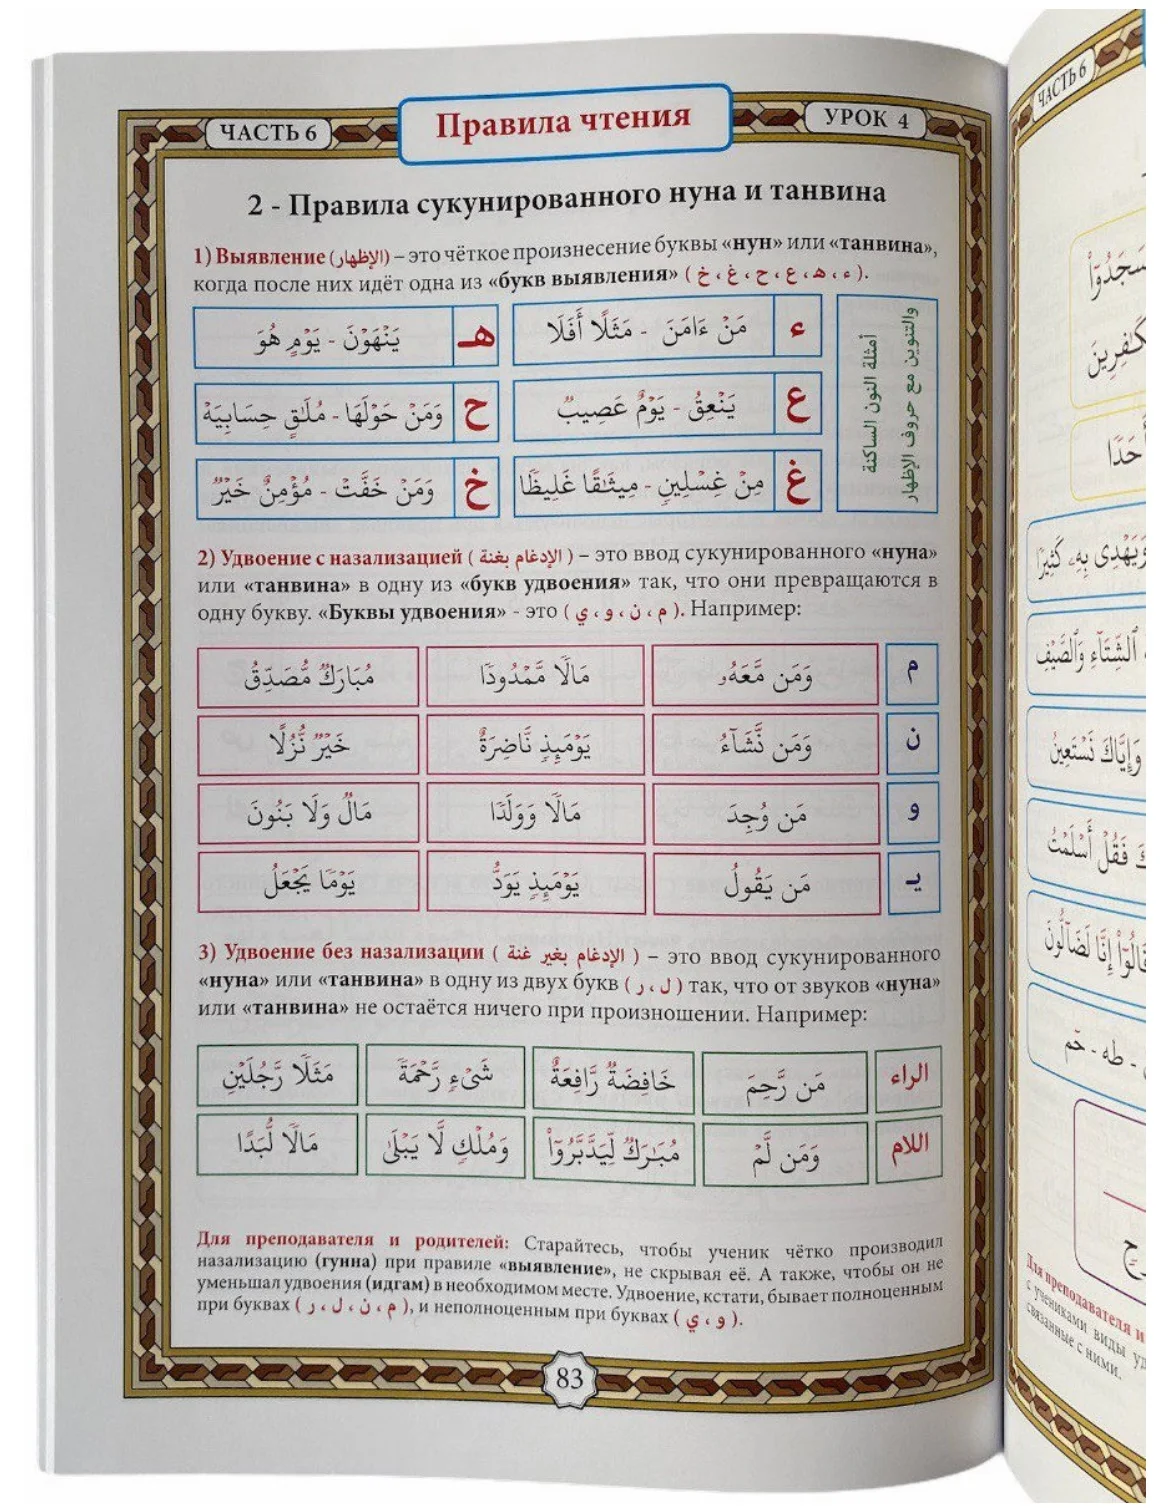 ЧАСТЬ 6
Правила чтения
УРОК 4
2 - Правила сукунированного нуна и танвина
1) Выявление (الإظهار) – это чёткое произнесение буквы «нун» или «танвина»,
когда после них идёт одна из «букв выявления» ( ء ، هـ ، ع ، ح ، غ ، خ ).
أمثلة النون الساكنة
والتنوين مع حروف الإظهار
ء مَنْ ءَامَنَ - مَثَلًا أَفَلَا
هـ يَنْهَوْنَ - يَوْمٍ هُوَ
ع يَنْعِقُ - يَوْمٌ عَصِيبٌ
ح وَمَنْ حَوْلَهَا - مُلَٰقٍ حِسَابِيَهْ
غ مِنْ غِسْلِينٍ - مِيثَٰقًا غَلِيظًا
خ وَمَنْ خَفَّتْ - مُؤْمِنٌ خَيْرٌ
2) Удвоение с назализацией ( الإدغام بغنة ) – это ввод сукунированного «нуна»
или «танвина» в одну из «букв удвоения» так, что они превращаются в
одну букву. «Буквы удвоения» - это ( م ، ن ، و ، ي ). Например:
م وَمَن مَّعَهُۥ مَالًا مَّمْدُودًا مُبَارَكٌ مُّصَدِّقُ
ن وَمَن نَّشَآءُ يَوْمَئِذٍ نَّاضِرَةٌ خَيْرٌ نُّزُلًا
و مَن وُجِدَ مَالًا وَوَلَدًا مَالٌ وَلَا بَنُونَ
يـ مَن يَقُولُ يَوْمَئِذٍ يَوَدُّ يَوْمًا يَجْعَلُ
3) Удвоение без назализации ( الإدغام بغير غنة ) – это ввод сукунированного
«нуна» или «танвина» в одну из двух букв ( ل ، ر ) так, что от звуков «нуна»
или «танвина» не остаётся ничего при произношении. Например:
الراء مَن رَّحِمَ خَافِضَةٌ رَّافِعَةٌ شَىْءٍ رَّحْمَةً مَثَلًا رَّجُلَيْنِ
اللام وَمَن لَّمْ مُبَٰرَكٌ لِّيَدَّبَّرُوٓا۟ وَمُلْكٍ لَّا يَبْلَىٰ مَالًا لُّبَدًا
Для преподавателя и родителей: Старайтесь, чтобы ученик чётко производил
назализацию (гунна) при правиле «выявление», не скрывая её. А также, чтобы он не
уменьшал удвоения (идгам) в необходимом месте. Удвоение, кстати, бывает полноценным
при буквах ( م ، ن ، ل ، ر ), и неполноценным при буквах ( و ، ي ).
83
ЧАСТЬ 6
أَحَدًا
وَيَهْدِى بِهِۦ كَثِيرًا
ٱلشِّتَآءِ وَٱلصَّيْفِ
وَإِيَّاكَ نَسْتَعِينُ
فَقُلْ أَسْلَمْتُ
قَالُوٓا۟ إِنَّا لَضَآلُّونَ
- طه - حم
Для преподавателя и
с учениками виды
связанные с ними.